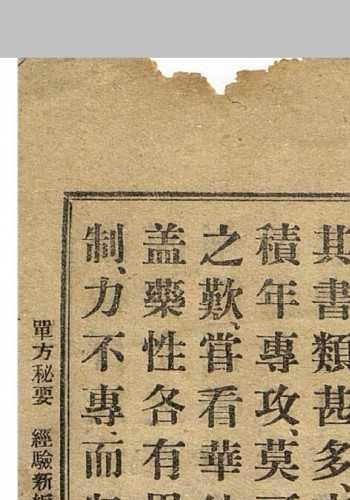 其書類甚多
積年專攻、莫
之歎、嘗看華
盖藥性各有
制、力不專、而
單方秘要 經驗新編